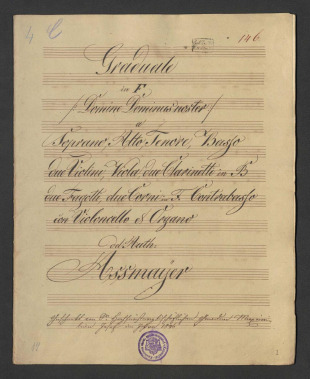 146
Graduale
in F
/ Domine Dominus noster /
a
Soprano Alto Tenore, Basso
due Violini, Viola due Clarinetti in B
due Fagotti, due Corni in F. Contrabasso
con Violoncello & Organo
del Auth.
Assmayer